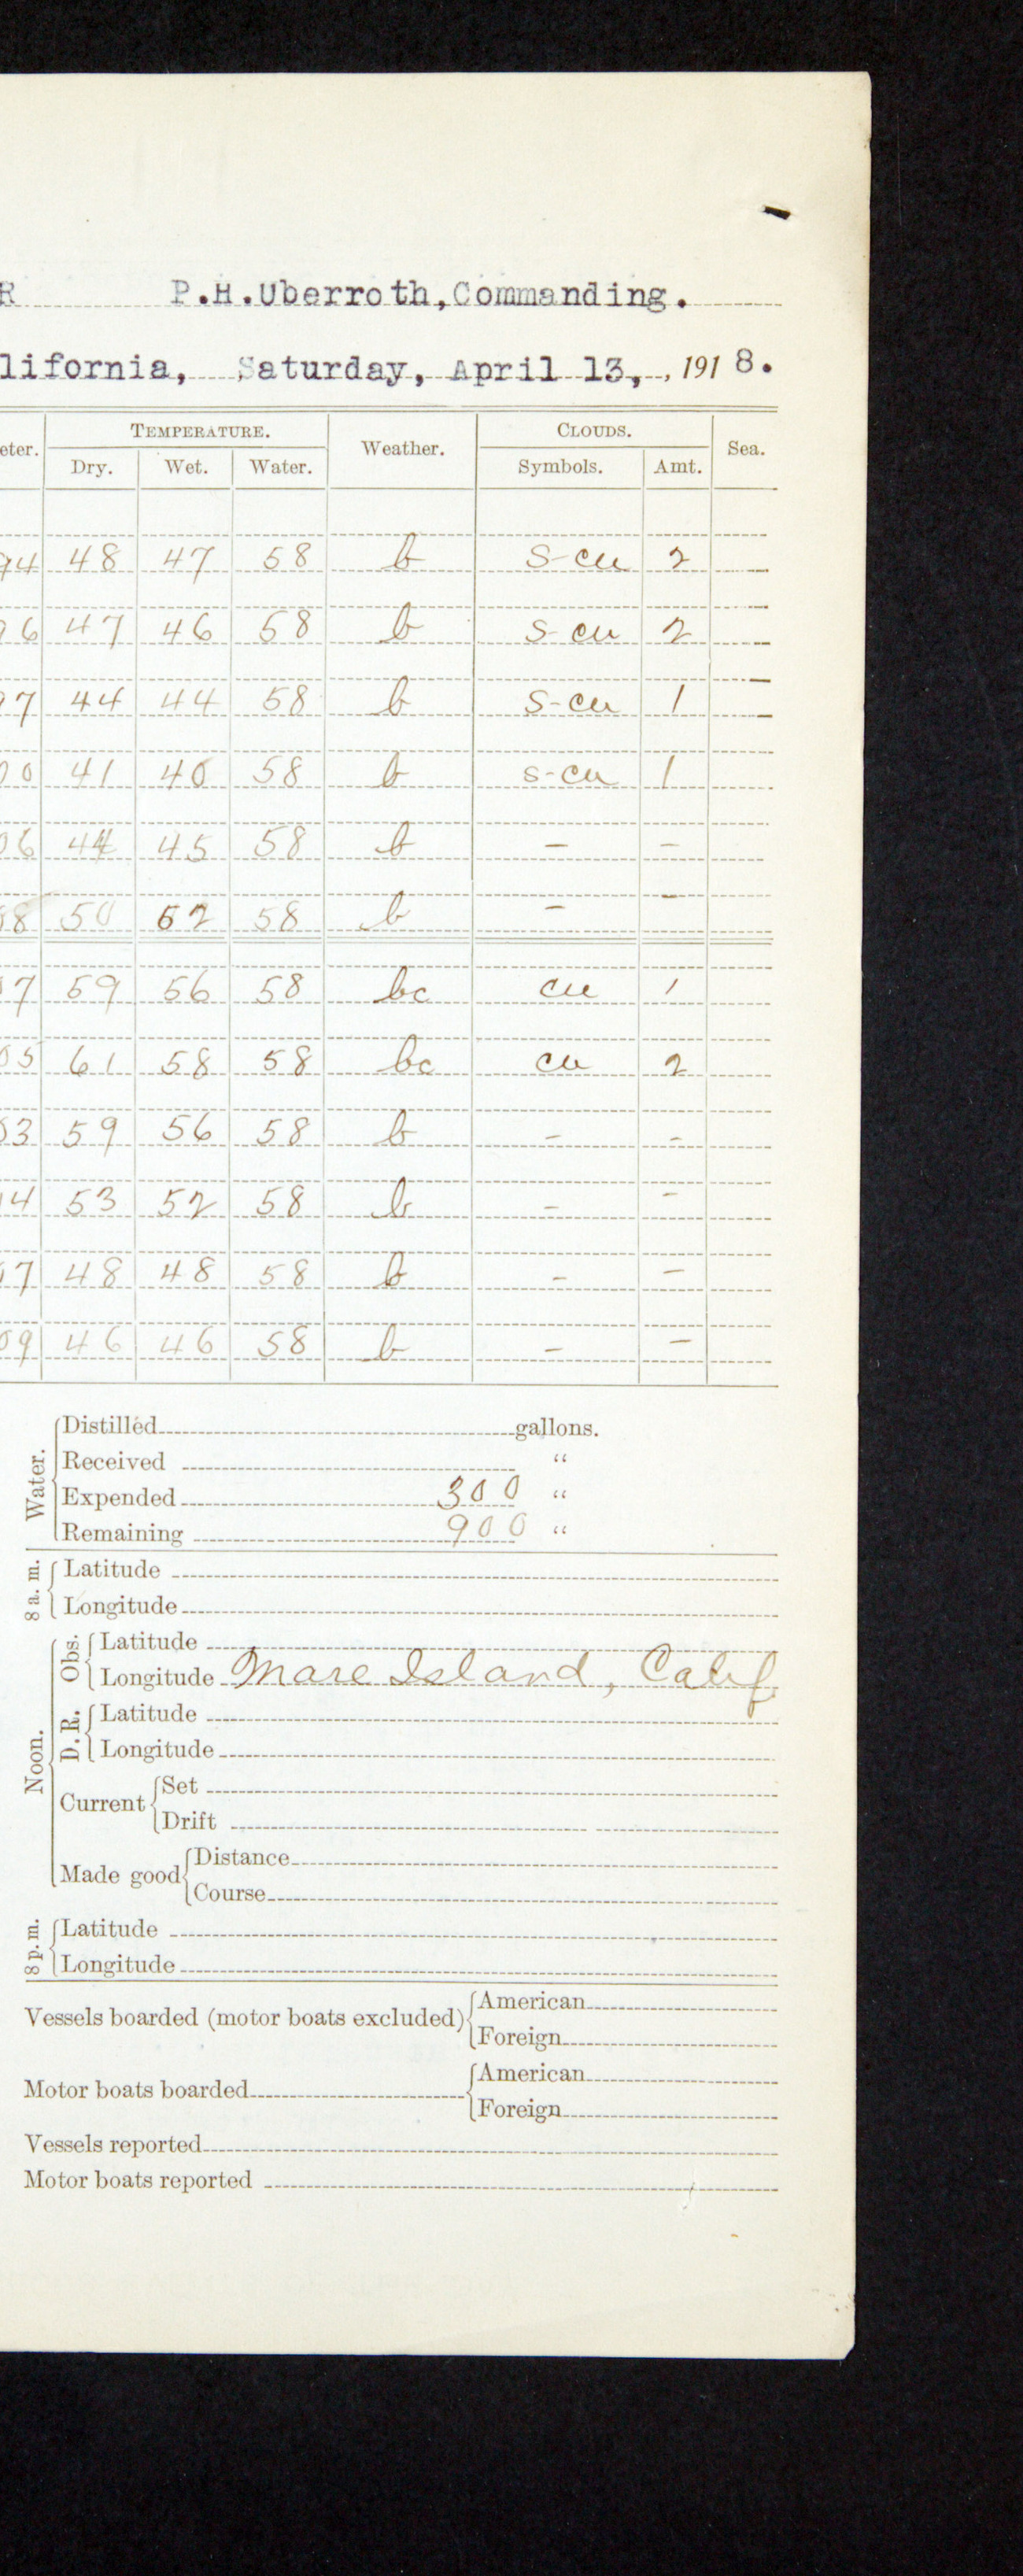 R P.H.Uberroth,Commanding.
lifornia, Saturday, April 13, , 1918.
eter. TEMPERATURE. Weather. CLOUDS. Sea.
Dry. Wet. Water. Symbols. Amt.
94 48 47 58 b s-cu 2 —
96 47 46 58 b s-cu 2 —
97 44 44 58 b s-cu 1 —
00 41 40 58 b s-cu 1
06 44 45 58 b – –
08 50 52 58 b – –
07 59 56 58 bc cu 1
05 61 58 58 bc cu 2
03 59 56 58 b – –
04 53 52 58 b – –
07 48 48 58 b – –
09 46 46 58 b – –
Water.
Distilled gallons.
Received “
Expended 300 “
Remaining 900 “
8 a. m.
Latitude
Longitude
Noon.
Obs.
Latitude
Longitude Mare Island, Calif
D. R.
Latitude
Longitude
Current
Set
Drift
Made good
Distance
Course
8 p. m.
Latitude
Longitude
Vessels boarded (motor boats excluded)
American
Foreign
Motor boats boarded
American
Foreign
Vessels reported
Motor boats reported